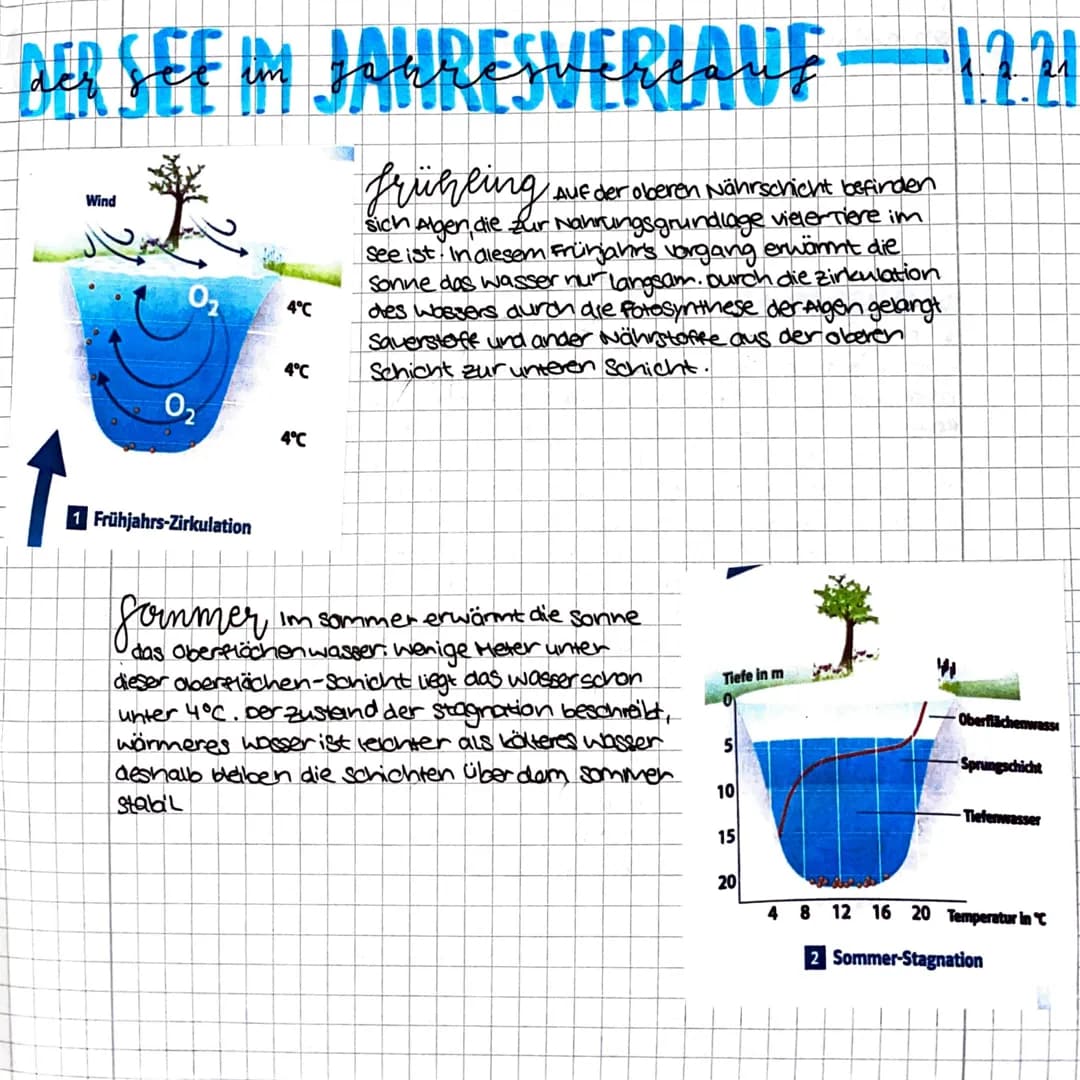 DER SEE IM JAHRESVERLAUF — 1.2.21
der see im jahresverlauf 1. 2. 21
Wind
O₂
4°C
4°C
O₂
4°C
1 Frühjahrs-Zirkulation
frühling, Auf der oberen Nährschicht befinden
sich Algen, die zur Nahrungsgrundlage vieler Tiere im
See ist. In diesem Frühjahrs vorgang erwärmt die
Sonne das Wasser nur langsam. Durch die Zirkulation
des Wassers durch die Fotosynthese der Algen gelangt
Sauerstoff und ander Nährstoffe aus der oberen
Schicht zur unteren Schicht.
Sommer, Im Sommer erwärmt die Sonne
das Oberflächenwasser. Wenige Meter unter
dieser Oberflächen-Schicht liegt das Wasser schon
unter 4°C. Der Zustand der Stagnation beschreibt,
wärmeres Wasser ist leichter als kälteres Wasser
deshalb bleiben die Schichten über dem Sommer
stabil
Tiefe in m
0
5
10
15
20
Oberflächenwasse
Sprungschicht
Tiefenwasser
4 8 12 16 20 Temperatur in °C
2 Sommer-Stagnation